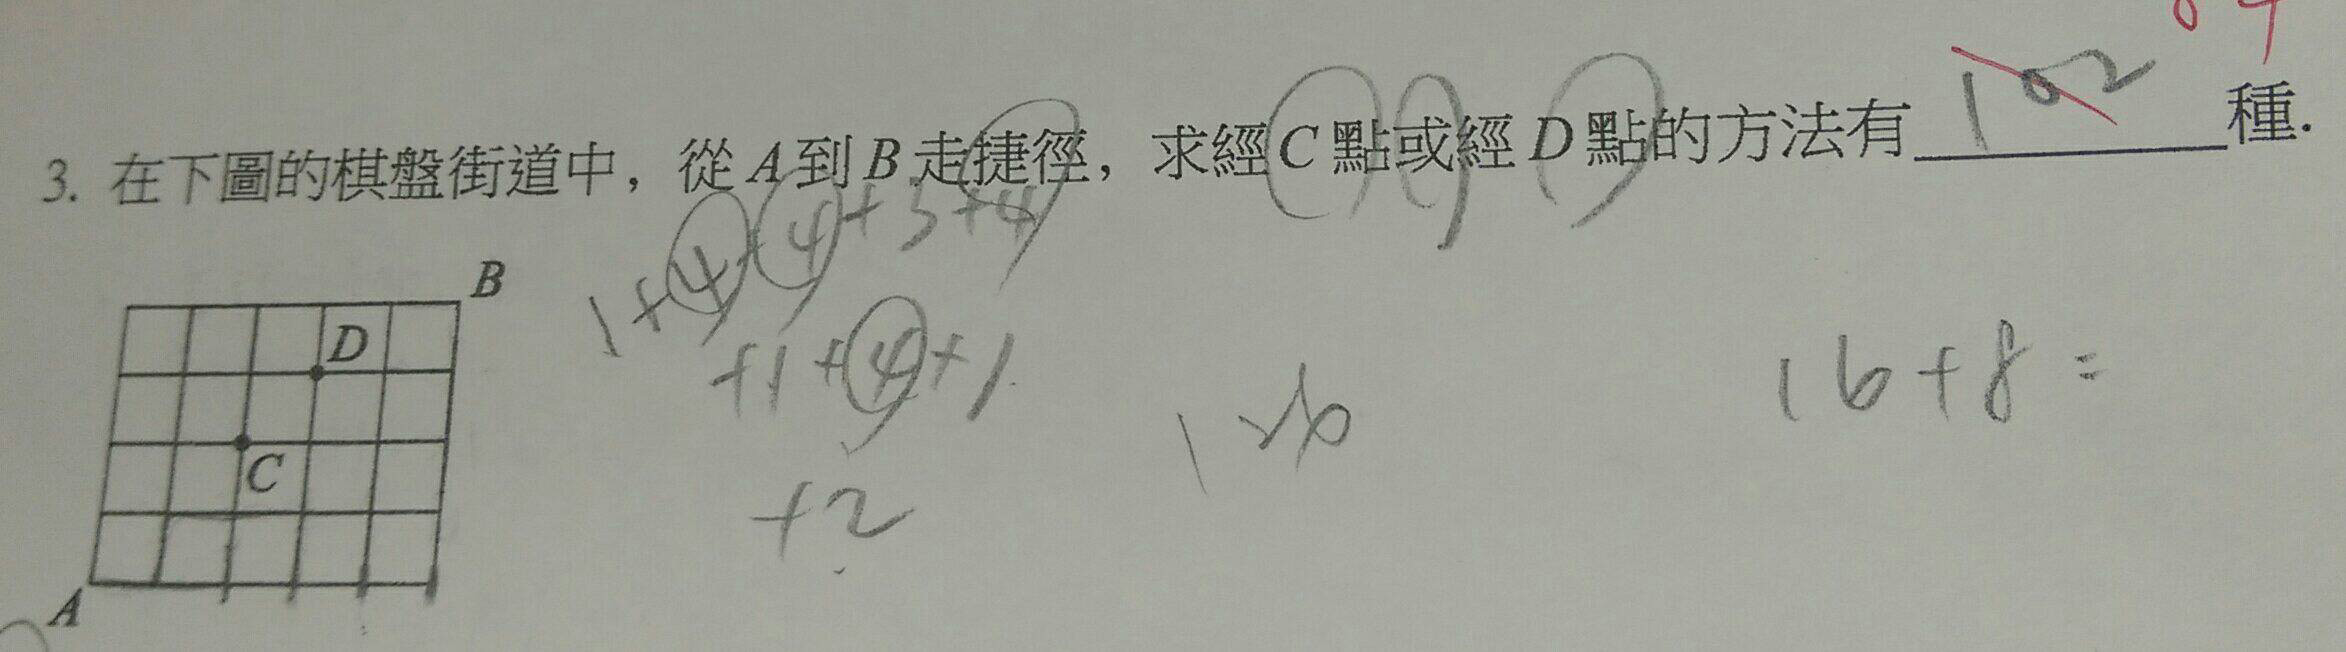 3. 在下圖的棋盤街道中，從A到B走捷徑，求經C點或經D點的方法有 102 種.
1+4+4+3+4
+1+4+1
+2
126
16+8=
B
D
C
A